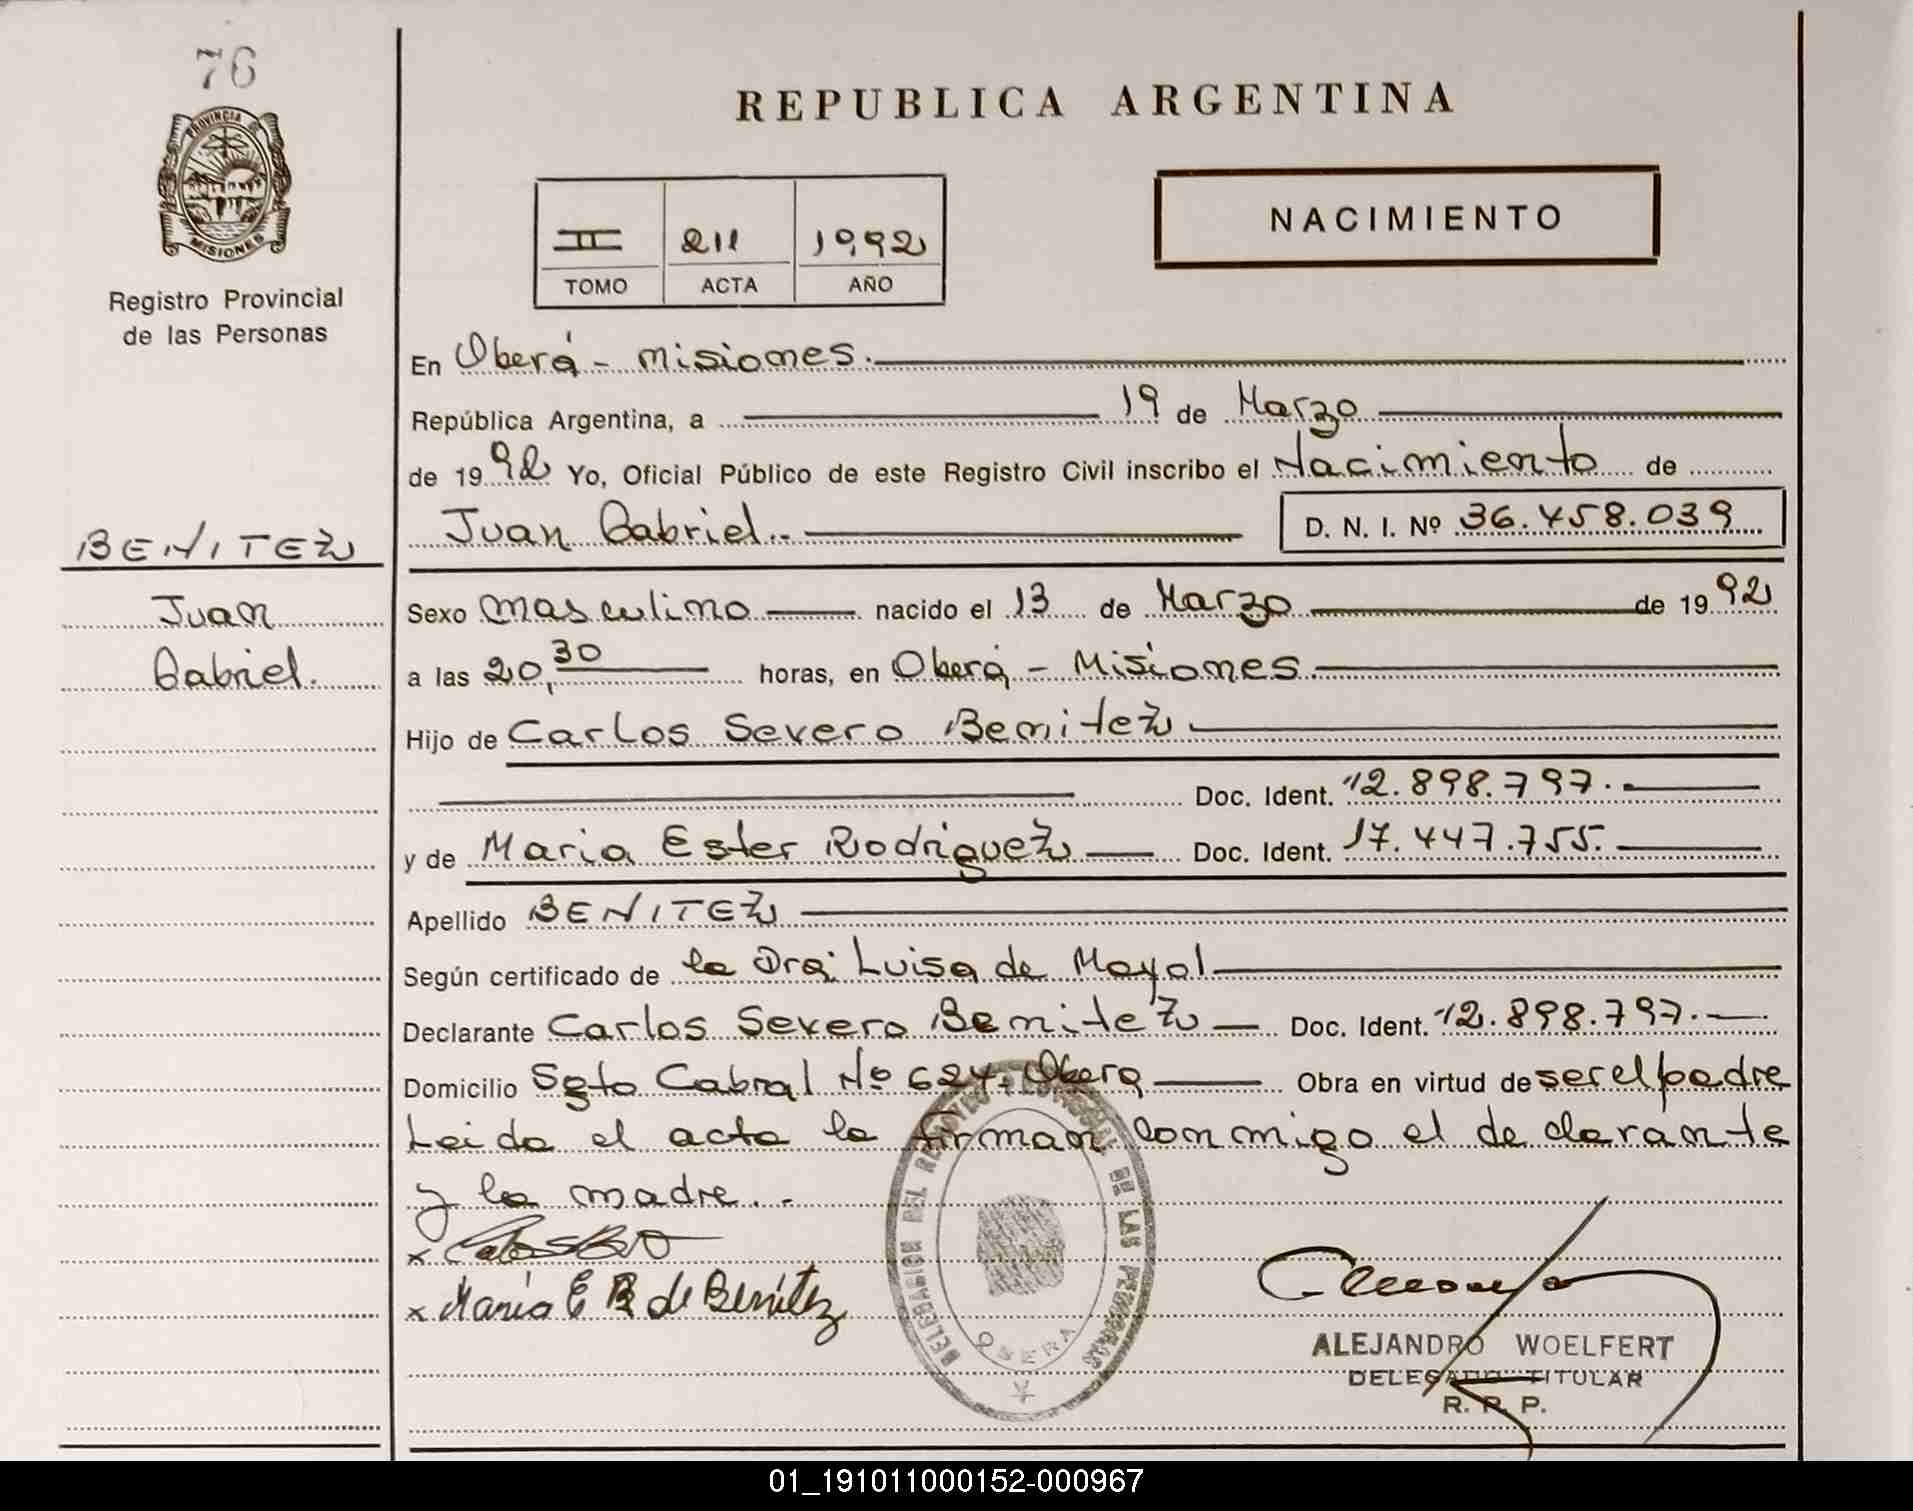 76
PROVINCIA DE
MISIONES
Registro Provincial
de las Personas
BENITEZ
Juan
Gabriel.
REPUBLICA ARGENTINA
II 211 1992
TOMO ACTA AÑO
NACIMIENTO
En Oberá - Misiones.
República Argentina, a 19 de Marzo
de 1992 Yo, Oficial Público de este Registro Civil inscribo el Nacimiento de
Juan Gabriel.. D. N. I. Nº 36.458.039
Sexo masculino nacido el 13 de Marzo de 1992
a las 20,30 horas, en Oberá - Misiones.
Hijo de Carlos Severo Benitez
Doc. Ident. 12.898.797.
y de Maria Ester Rodriguez Doc. Ident. 17.447.755.
Apellido BENITEZ
Según certificado de la Dra: Luisa de Mayol
Declarante Carlos Severo Benitez Doc. Ident. 12.898.797.
Domicilio Sgto Cabral Nº 624, Oberá Obra en virtud de ser el padre
Leida el acta la firman conmigo el declarante
y la madre..-
x
x María E R de Benítez
DELEGACION DEL REGISTRO PROVINCIAL DE LAS PERSONAS
OBERA
ALEJANDRO WOELFERT
DELEGADO TITULAR
R. P. P.
01_191011000152-000967